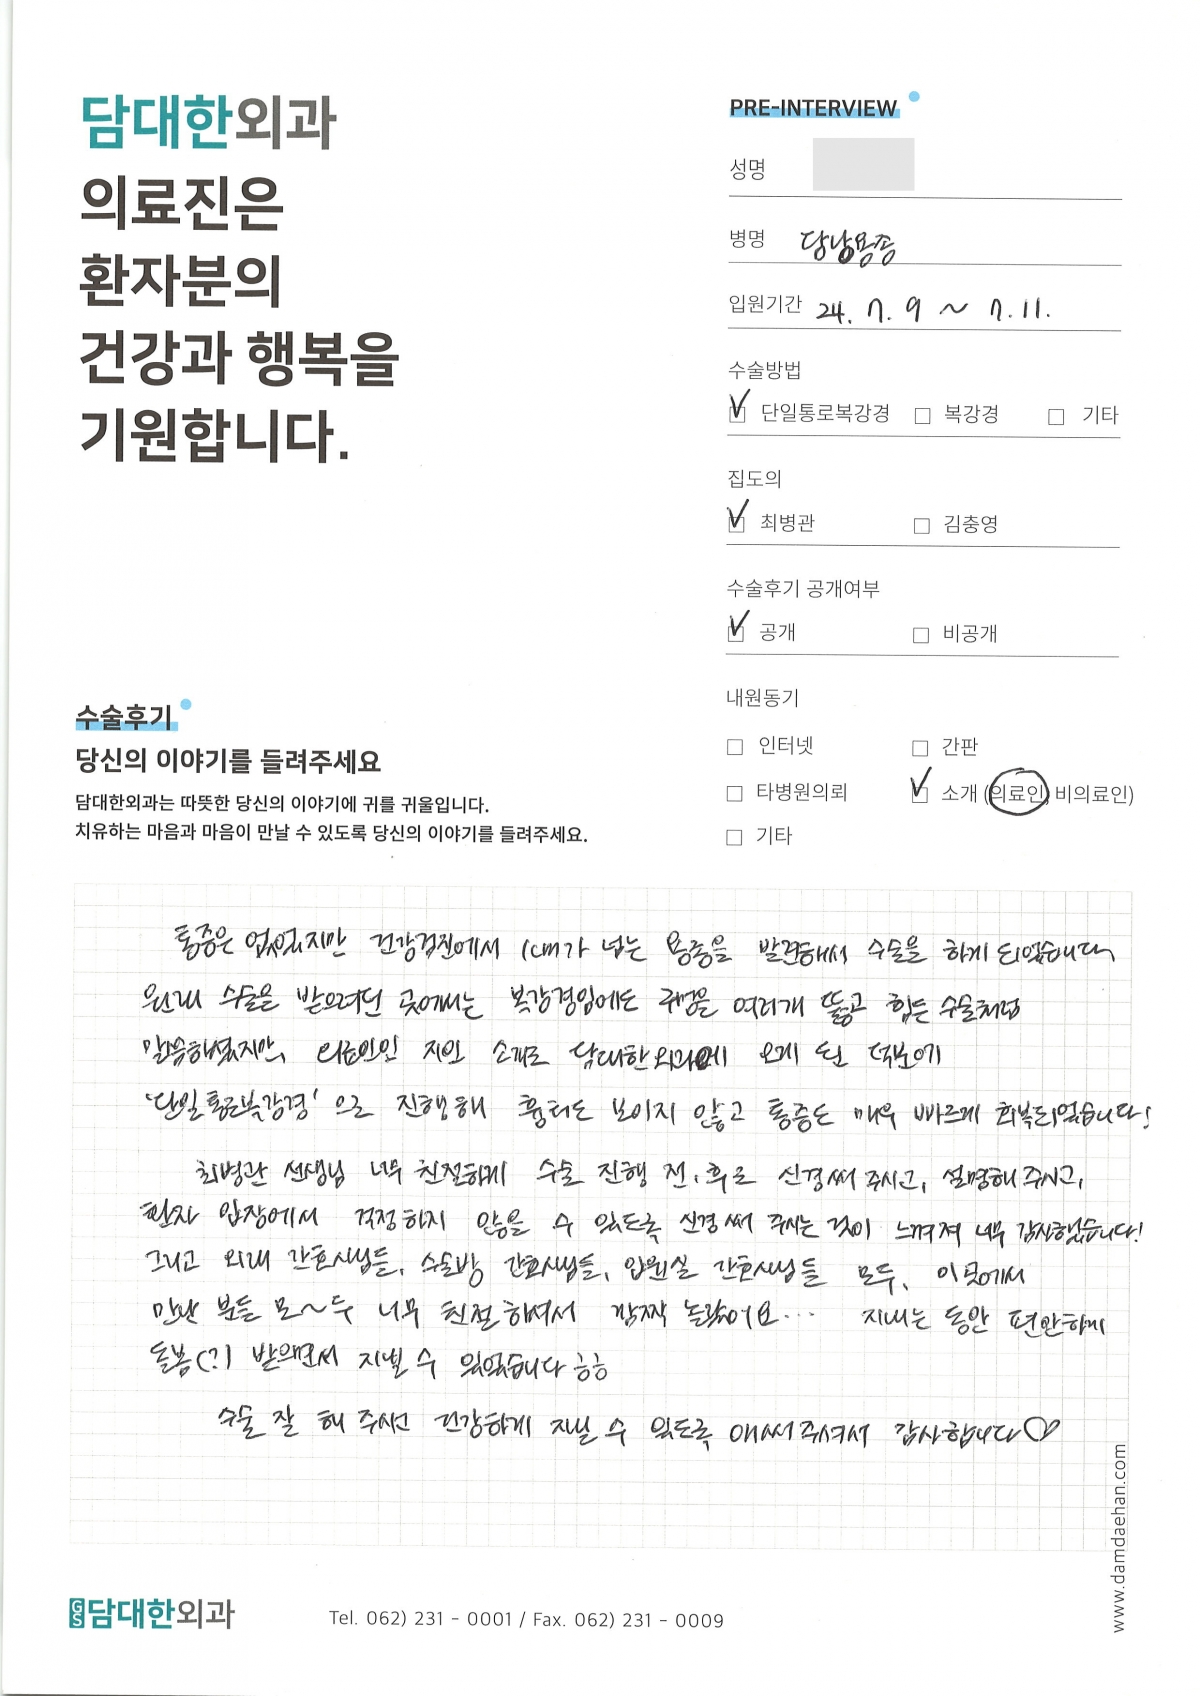 담대한외과
의료진은
환자분의
건강과 행복을
기원합니다.
PRE-INTERVIEW
성명
병명 담낭용종
입원기간 24. 7. 9 ~ 7. 11.
수술방법
☑ 단일통로복강경 □ 복강경 □ 기타
집도의
☑ 최병관 □ 김충영
수술후기 공개여부
☑ 공개 □ 비공개
내원동기
□ 인터넷 □ 간판
□ 타병원의뢰 ☑ 소개 (의료인, 비의료인)
□ 기타
수술후기
당신의 이야기를 들려주세요
담대한외과는 따뜻한 당신의 이야기에 귀를 귀울입니다.
치유하는 마음과 마음이 만날 수 있도록 당신의 이야기를 들려주세요.
통증은 없었지만 건강검진에서 1cm가 넘는 용종을 발견해서 수술을 하게 되었습니다
원래 수술을 받으려던 곳에서는 복강경임에도 구멍을 여러개 뚫고 힘든 수술처럼
말씀하셨지만, 의료인인 지인 소개로 담대한외과에 오게 된 덕분에
'단일통로복강경'으로 진행해 흉터도 보이지 않고 통증도 매우 빠르게 회복되었습니다!
최병관 선생님 너무 친절하게 수술 진행 전·후로 신경써 주시고, 설명해 주시고,
환자 입장에서 걱정하지 않을 수 있도록 신경 써 주시는 것이 느껴져 너무 감사했습니다!
그리고 외래 간호사님들, 수술방 간호사님들, 입원실 간호사님들 모두, 이곳에서
만난 분들 모~두 너무 친절하셔서 깜짝 놀랐어요... 지내는 동안 편안하게
돌봄(?) 받으면서 지낼 수 있었습니다 ㅎㅎ
수술 잘 해 주셔서 건강하게 지낼 수 있도록 애써주셔서 감사합니다♡
GS 담대한외과
Tel. 062) 231 - 0001 / Fax. 062) 231 - 0009
www.damdaehan.com